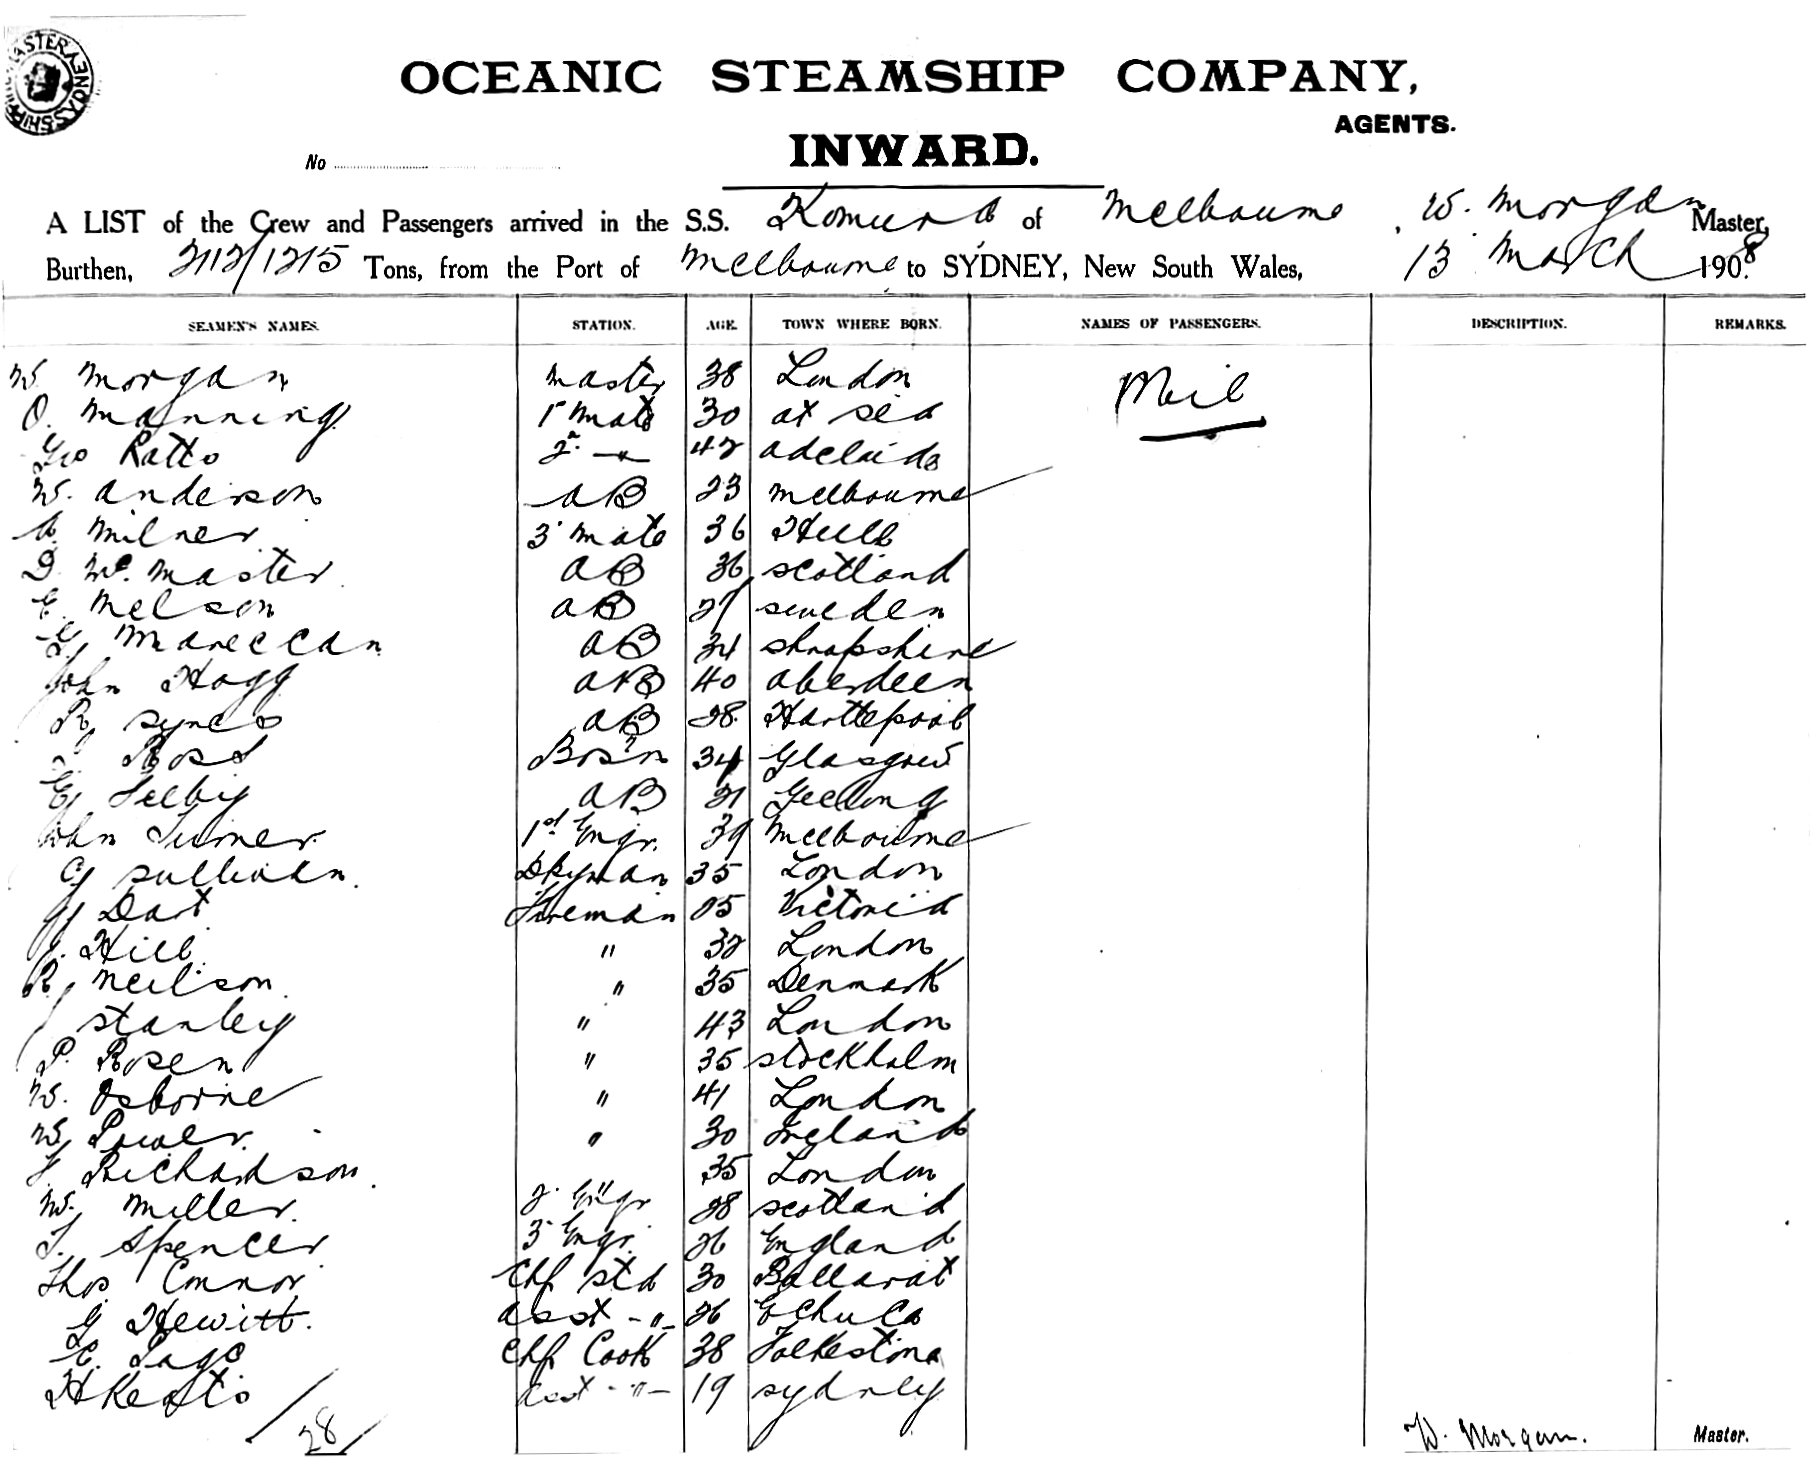 OCEANIC STEAMSHIP COMPANY,
AGENTS.
INWARD.
No
A LIST of the Crew and Passengers arrived in the S.S. Komura of Melbourne, W. Morgan Master,
Burthen, 2112/1215 Tons, from the Port of Melbourne to SYDNEY, New South Wales, 13 March 1908
SEAMEN'S NAMES. STATION. AGE. TOWN WHERE BORN. NAMES OF PASSENGERS. DESCRIPTION. REMARKS.
W. Morgan Master 38 London
O. Manning 1 Mate 30 at sea
Geo Ratto 2 " 42 Adelaide
W. Anderson AB 23 Melbourne
A. Milner 3 Mate 36 Hull
D. Mc Master AB 36 Scotland
E. Nelson AB 27 Sweden
G. AB 34 Shropshire
John Hogg AB 40 Aberdeen
R Synes AB 28 Hartlepool
Ross Bosn 34 Glasgow
G Selby AB 21 Geelong
John Turner 1st Engr. 39 Melbourne
Cj Sullivan Dkyman 35 London
Dart Fireman 25 Victoria
J. Hill " 32 London
R. Neilson " 35 Denmark
J Stanley " 43 London
P. Rosen " 35 Stockholm
W. Osborne " 41 London
W. Power " 30 Ireland
Richardson " 35 London
W. Miller 2 Engr 28 Scotland
T. Spencer 3 Engr. 26 England
Thos Connor Chf Std 30 Ballarat
G Hewitt. Asst -"- 26 Echuca
Page Chf Cook 38 Folkestone
H Keato Asst -"- 19 Sydney
28
W. Morgan. Master.